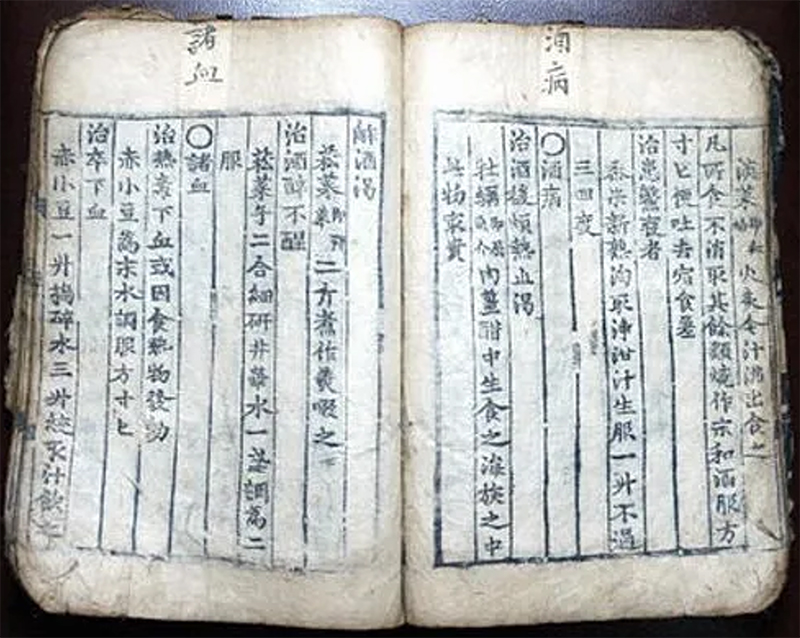 酒病
菜火炙令汁沸出食之
凡所食不消取其餘類燒作末和酒服方
寸匕便吐去宿食差
治患鱉瘕者
黍米新熟淘取淨泔汁生服一升不過
三四度
○酒病
治酒後煩熱止渴
牡蠣肉薑醋中生食之海族之中
此物最貴
諸血
解酒渴
菘菜二斤煮作羹啜之
治酒醉不醒
菘菜子二合細研井華水一盞調爲二
服
○諸血
治熱毒下血或因食熱物發動
赤小豆爲末水調服方寸匕
治卒下血
赤小豆一升搗碎水三升絞取汁飲之